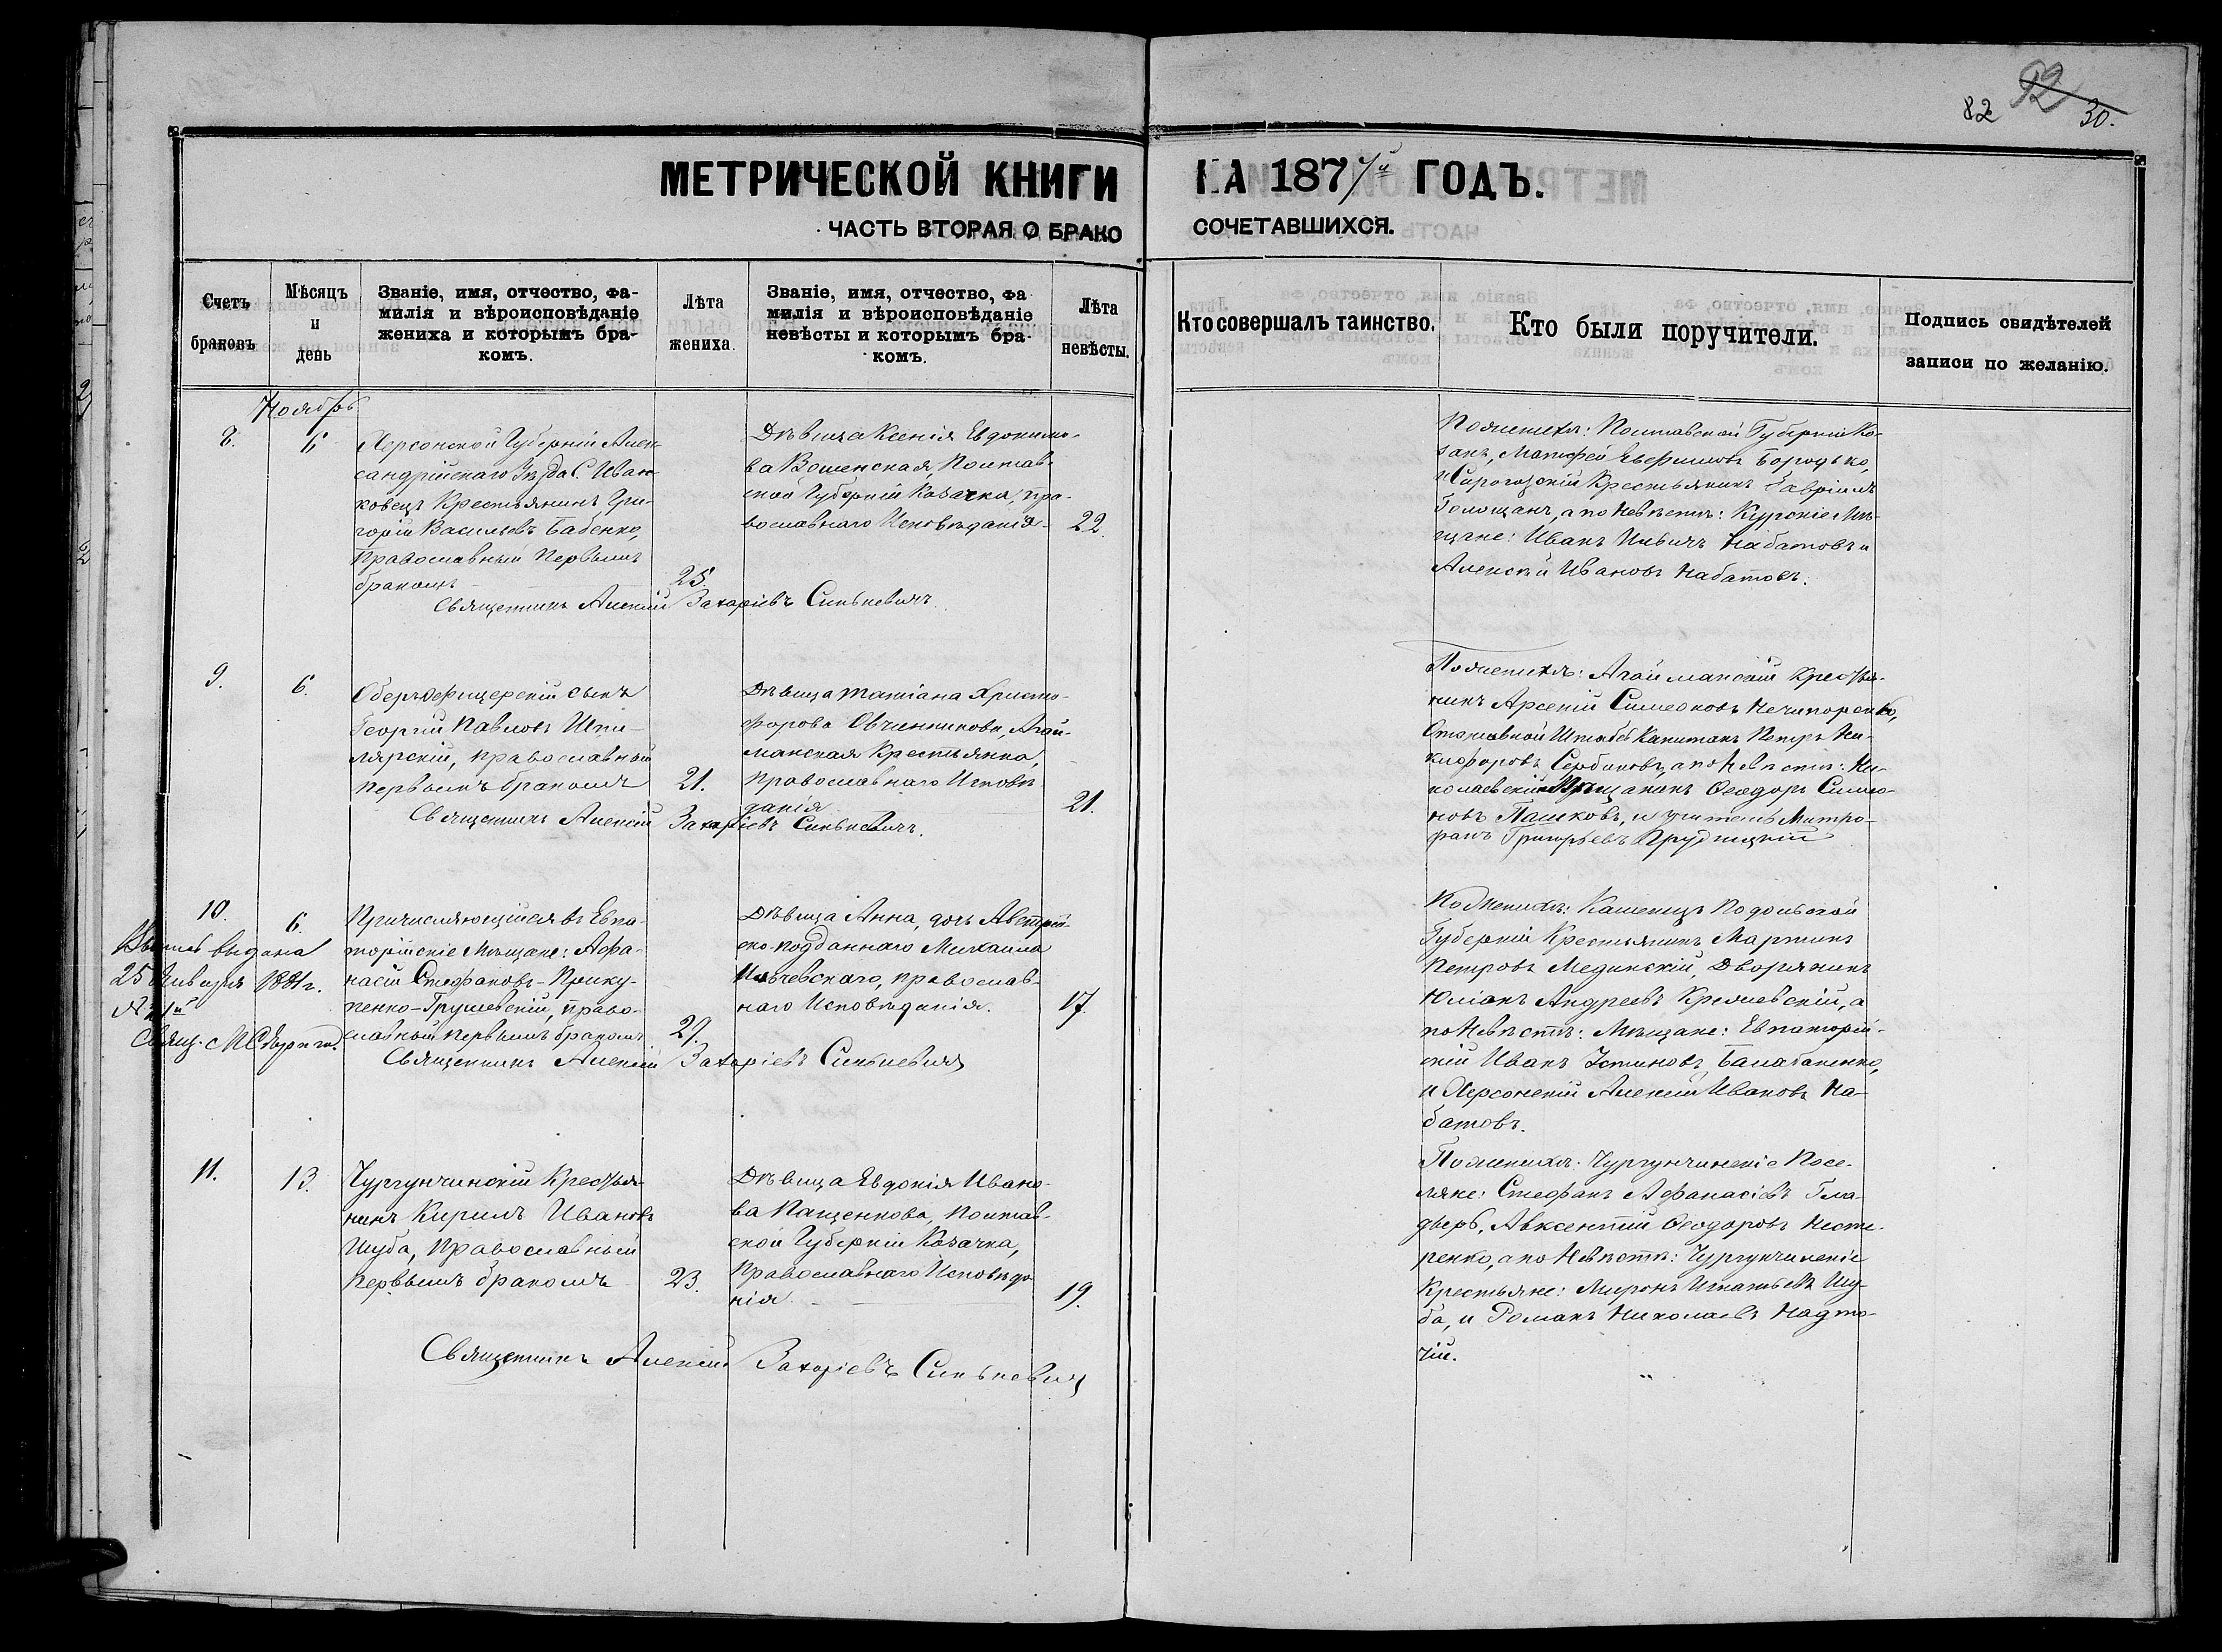 82 92 30.
МЕТРИЧЕСКОЙ КНИГИ НА 1877й ГОДЪ.
ЧАСТЬ ВТОРАЯ О БРАКО СОЧЕТАВШИХСЯ.
Счетъ браковъ
Мѣсяцъ и день
Званіе, имя, отчество, фа-
милія и вѣроисповѣданіе
жениха и которымъ бра-
комъ.
Лѣта жениха.
Званіе, имя, отчество, фа
милія и вѣроисповѣданіе
невѣсты и которымъ бра-
комъ.
Лѣта невѣсты.
Кто совершалъ таинство.
Кто были поручители.
Подпись свидѣтелей
записи по желанію.
Ноябрь
8.
6
Херсонской Губерніи Алек-
сандрійскаго Уѣзда С. Иван-
ковецъ Крестьянинъ Гри-
горій Васильевъ Бабенко,
Православный первымъ
бракомъ
25.
Дѣвица Ксенія Евдокимо-
ва Вошенская, Полтав-
ской Губерніи Козачка, пра-
вославнаго Исповѣданія
22.
Священникъ Алексій Захаріевъ Синькевичъ
По женихѣ: Полтавской Губерніи Ко-
закъ, Матфей Евфимовъ Бородько,
и Сирогозскій Крестьянинъ Гавріилъ
Голощапъ, а по Невѣстѣ: Курскіе Мѣ-
щане: Иванъ Ильичъ Набатовъ и
Алексѣй Ивановъ Набатовъ.
9.
6.
Оберъофицерскій сынъ
Георгій Павловъ Шпи-
лярскій, православный
первымъ бракомъ
21.
Дѣвица Татіана Христо-
форова Овчинникова, Агай-
манская Крестьянка,
православнаго Исповѣ-
данія
21.
Священникъ Алексій Захаріевъ Синькевичъ.
По женихѣ: Агайманскій Крестья-
нинъ Арсеній Симеоновъ Нечипоренко,
Отставной Штабсъ Капитанъ Петръ Ни-
кифоровъ Сербиновъ, а по Невѣстѣ: Ни-
колаевскій Мѣщанинъ Ѳеодоръ Симео-
новъ Пашковъ, и учитель Митро-
фанъ Григорьевъ Прудницкій
10.
6.
Выпись выдана
25 Января 1881 г.
Свящ. М.
Причисляющійся въ Евпа-
торійскіе Мѣщане: Афа-
насій Стефановъ-Прику-
пенко-Грушевскій, право-
славный первымъ бракомъ
29.
Дѣвица Анна, дочь Австрій-
ско-подданнаго Михаила
Ильчевскаго, православ-
наго Исповѣданія.
17.
Священникъ Алексій Захаріевъ Синькевичъ
По Женихѣ: Каменецъ Подольской
Губерніи Крестьянинъ Мартинъ
Петровъ Мединскій, Дворянинъ
Юліанъ Андреевъ Крежевскій, а
по Невѣстѣ: Мѣщане: Евпаторій-
скій Иванъ Устиновъ Балабаненко,
и Херсонскій Алексій Ивановъ На-
батовъ.
11.
13.
Чургунчинскій Крестья-
нинъ Кирилъ Ивановъ
Шуба, Православный
первымъ бракомъ
23.
Дѣвица Евдокія Ивано-
ва Пащенкова, Полтав-
ской Губерніи Козачка,
Православнаго Исповѣда-
нія.
19.
Священникъ Алексій Захаріевъ Синькевичъ
По женихѣ: Чургунчинскіе Посе-
ляне: Стефанъ Афанасіевъ Гла-
дырь, Авксентій Ѳеодоровъ Несте-
ренко, а по Невѣстѣ: Чургунчинскіе
Крестьяне: Миронъ Игнатьевъ Шу-
ба, и Романъ Николаевъ Надто-
чій.